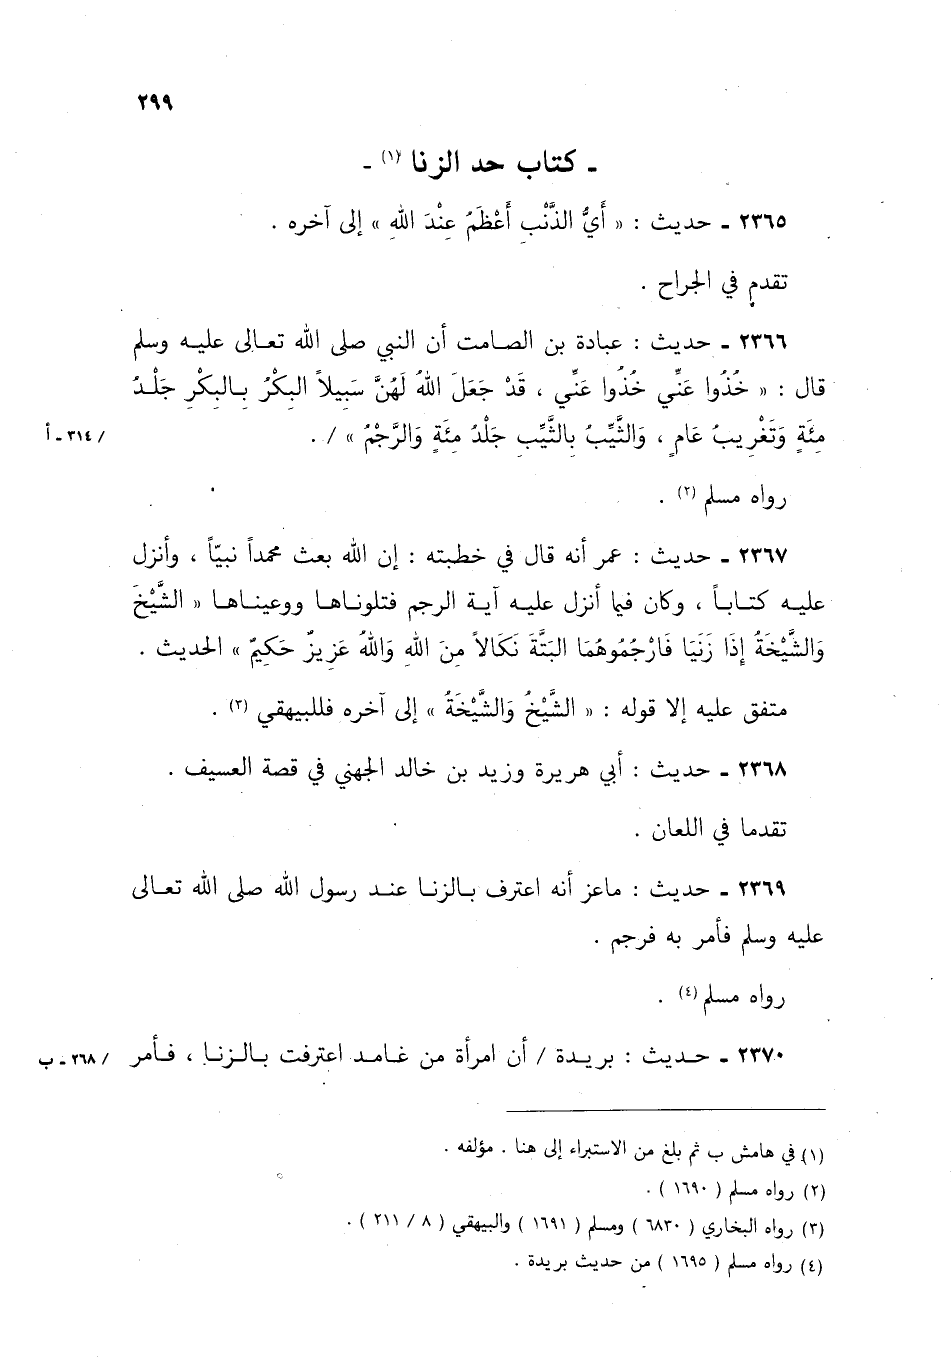 ٢٩٩
ـ كتاب حد الزنا (١) ـ
٢٣٦٥ ـ حديث : « أَيُّ الذَّنْبِ أَعْظَمُ عِنْدَ اللهِ » إلى آخره .
تقدم في الجراح .
٢٣٦٦ ـ حديث : عبادة بن الصامت أن النبي صلى الله تعالى عليه وسلم
قال : « خُذُوا عَنِّي خُذُوا عَنِّي ، قَدْ جَعَلَ اللهُ لَهُنَّ سَبِيلاً البِكْرُ بِالبِكْرِ جَلْدُ
مِئَةٍ وَتَغْرِيبُ عَامٍ ، وَالثَّيِّبُ بِالثَّيِّبِ جَلْدُ مِئَةٍ وَالرَّجْمُ » / .
/ ٣١٤ ـ أ
رواه مسلم (٢) .
٢٣٦٧ ـ حديث : عمر أنه قال في خطبته : إن الله بعث محمداً نبيّاً ، وأنزل
عليه كتاباً ، وكان فيما أنزل عليه آية الرجم فتلوناها ووعيناها « الشَّيْخَ
وَالشَّيْخَةُ إِذَا زَنَيَا فَارْجُمُوهُمَا البَتَّةَ نَكَالاً مِنَ اللهِ وَاللهُ عَزِيزٌ حَكِيمٌ » الحديث .
متفق عليه إلا قوله : « الشَّيْخُ وَالشَّيْخَةُ » إلى آخره فللبيهقي (٣) .
٢٣٦٨ ـ حديث : أبي هريرة وزيد بن خالد الجهني في قصة العسيف .
تقدما في اللعان .
٢٣٦٩ ـ حديث : ماعز أنه اعترف بالزنا عند رسول الله صلى الله تعالى
عليه وسلم فأمر به فرجم .
رواه مسلم (٤) .
٢٣٧٠ ـ حديث : بريدة / أن امرأة من غامد اعترفت بالزنا ، فأمر
/ ٢٦٨ ـ ب
(١) في هامش ب ثم بلغ من الاستبراء إلى هنا . مؤلفه .
(٢) رواه مسلم ( ١٦٩٠ ) .
(٣) رواه البخاري ( ٦٨٣٠ ) ومسلم ( ١٦٩١ ) والبيهقي ( ٨ / ٢١١ ) .
(٤) رواه مسلم ( ١٦٩٥ ) من حديث بريدة .